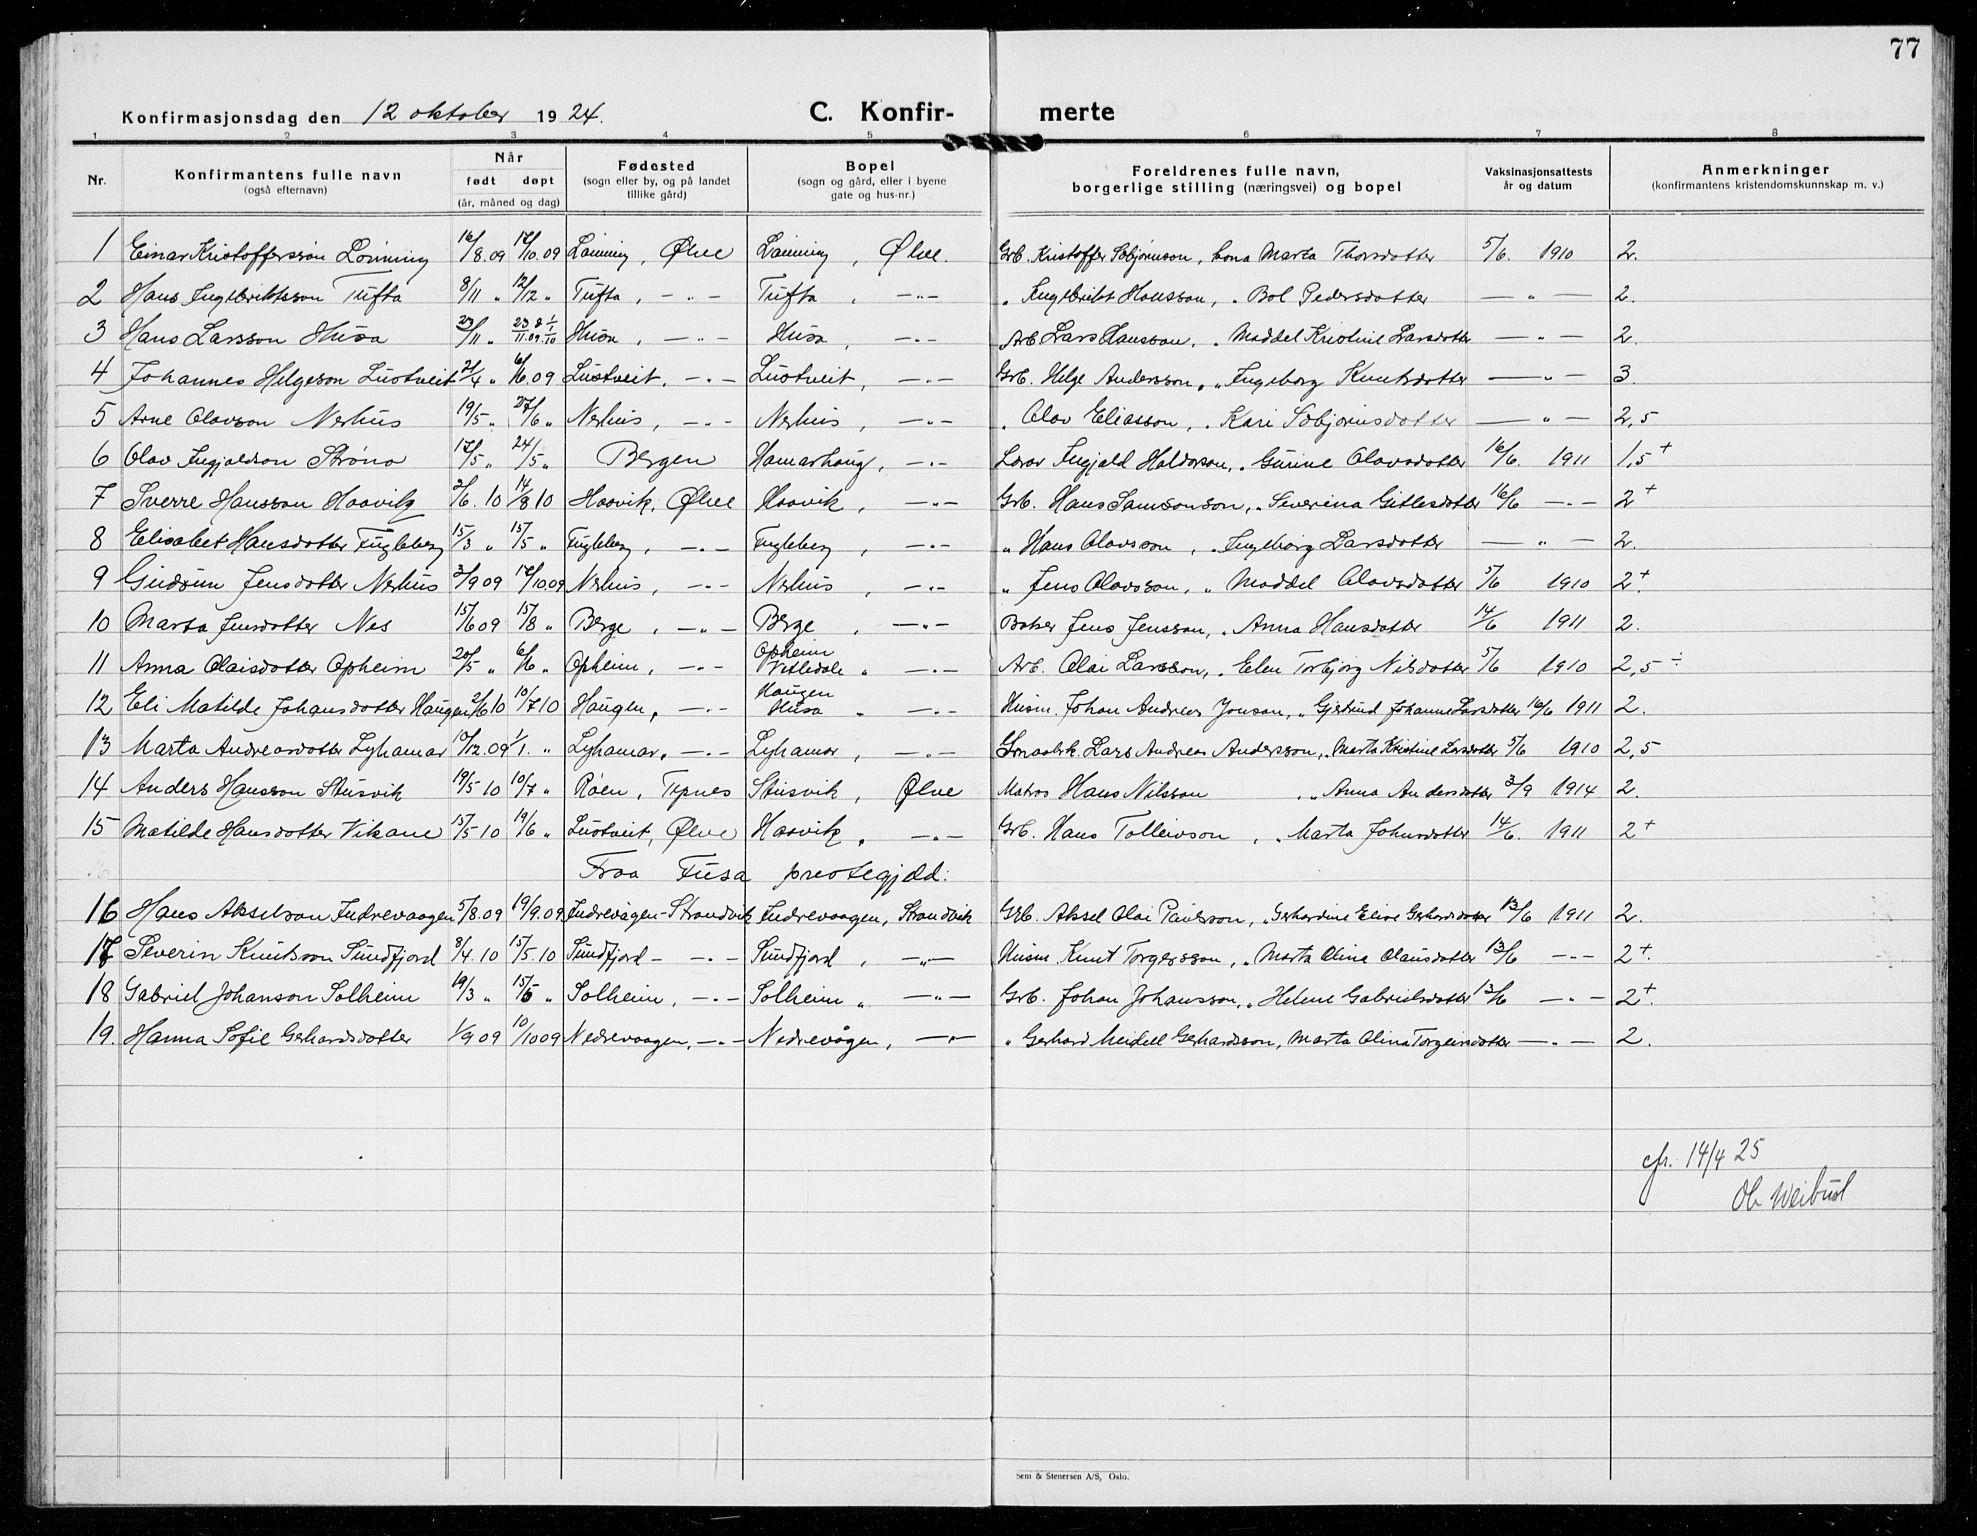 77
Konfirmasjonsdag den 12 oktober 1924. C. Konfirmerte
1 2 3 4 5 6 7 8
Nr. Konfirmantens fulle navn (også efternavn) Når født døpt (år, måned og dag) Fødested (sogn eller by, og på landet tillike gård) Bopel (sogn og gård, eller i byene gate og hus-nr.) Foreldrenes fulle navn, borgerlige stilling (næringsvei) og bopel Vaksinasjonsattests år og datum Anmerkninger (konfirmantens kristendomskunnskap m. v.)
1 Einar Kristoffersson Lønning 16/8.09 17/10.09 Lønning, Ølve Lønning, Ølve. Grb. Kristoffer Sebjørnson, kona Marta Thorsdotter 5/6. 1910 2.
2 Hans Ingebriktsson Tufta 8/11 " 12/12 " Tufta, —"— Tufta, —"— " Ingebrikt Hansson, " Bol Pedersdotter —"— 2.
3 Hans Larsson Husa 23/11 " 23/11.09 & 1/1 10 Husa, —"— Husa, —"— Arb. Lars Hansson, " Maddel Kristine Larsdotter —"— 2.
4 Johannes Helgeson Lustveit 21/4 " 6/6.09 Lustveit, —"— Lustveit, —"— Grb. Helge Andersson, " Ingeborg Knutsdotter —"— 3.
5 Arne Olavson Nerhus 19/5 " 27/6 " Nerhus, —"— Nerhus, —"— " Olav Eliasson, " Kari Sebjørnsdotter —"— 2,5
6 Olav Ingjaldson Strøno 17/5 " 24/5 " Bergen Hamarhaug, —"— Lærar Ingjald Haldorson, " Gurine Olavsdotter 16/6. 1911 1,5+
7 Sverre Hansson Haavik 2/6 10 14/8 10 Haavik, Ølve Haavik, —"— Grb. Hans Samsonson, " Severina Gitlesdotter 16/6 —"— 2+
8 Elisabet Hansdotter Fugleberg 15/3 " 15/5 " Fugleberg, —"— Fugleberg, —"— " Hans Olavsson, " Ingeborg Larsdotter —"— 2.
9 Gudrun Jensdotter Nerhus 3/9 09 17/10 09 Nerhus, —"— Nerhus, —"— " Jens Olavsson, " Maddel Olavsdotter 5/6 1910 2+
10 Marta Jensdotter Nes 15/6 09 15/8 " Berge, —"— Berge, —"— Baker Jens Jensson, " Anna Hansdotter 14/6 1911 2.
11 Anna Olaisdotter Opheim 20/5 " 6/6 " Opheim, —"— Opheim Vetledale " —"— Arb. Olai Larsson, " Elen Torbjørg Nilsdotter 5/6 1910 2,5 ÷
12 Eli Matilde Johansdotter Haugen 2/6 10 10/7 10 Haugen, —"— Haugen Husa " —"— Husm. Johan Andreas Jonson, " Gjertrud Johanne Larsdotter 16/6 1911 2.
13 Marta Andreasdotter Lyhamar 10/12.09 1/1. " Lyhamar, —"— Lyhamar, —"— Smaabrk Lars Andreas Andersson, " Marta Kristine Larsdotter 5/6 1910 2,5
14 Anders Hansson Stusvik 19/5 10 10/7 " Røen, Tysnes Stusvik, Ølve Matros Hans Nilsson, " Anna Andersdotter 3/9 1914 2.
15 Matilde Hansdotter Vikane 15/5 10 19/6 " Lustveit, Ølve Haavik, —"— Grb. Hans Tolleivson, " Marta Johnsdotter 14/6. 1911 2+
Fraa Fusa prestegjeld:
16 Hans Akselson Indrevaagen 5/8.09 19/9.09 Indrevågen - Strandvik Indrevaagen, Strandvik Grb. Aksel Olai Paulsson, " Gerhardine Elise Gerhardsdotter 13/6 1911 2.
17 Severin Knutsson Sundfjord 8/4.10 15/5.10 Sundfjord - —"— Sundfjord, —"— Husm. Knut Torgersson, " Marta Olina Olausdotter 13/6 —"— 2+.
18 Gabriel Johanson Solheim 19/3 " 15/5 " Solheim, —"— Solheim " —"— Grb. Johan Johansson, " Helene Gabrielsdotter 13/6 —"— 2+.
19. Hanna Sofie Gerhardsdotter 1/9 09 10/10 09 Nedrevaagen, —"— Nedrevågen, —"— " Gerhard Meidell Gerhardsson, Marta Olina Torgeirsdotter —"— 2.
cfr. 14/4 25
Ol. Weibust
Sem & Stenersen A/S, Oslo.